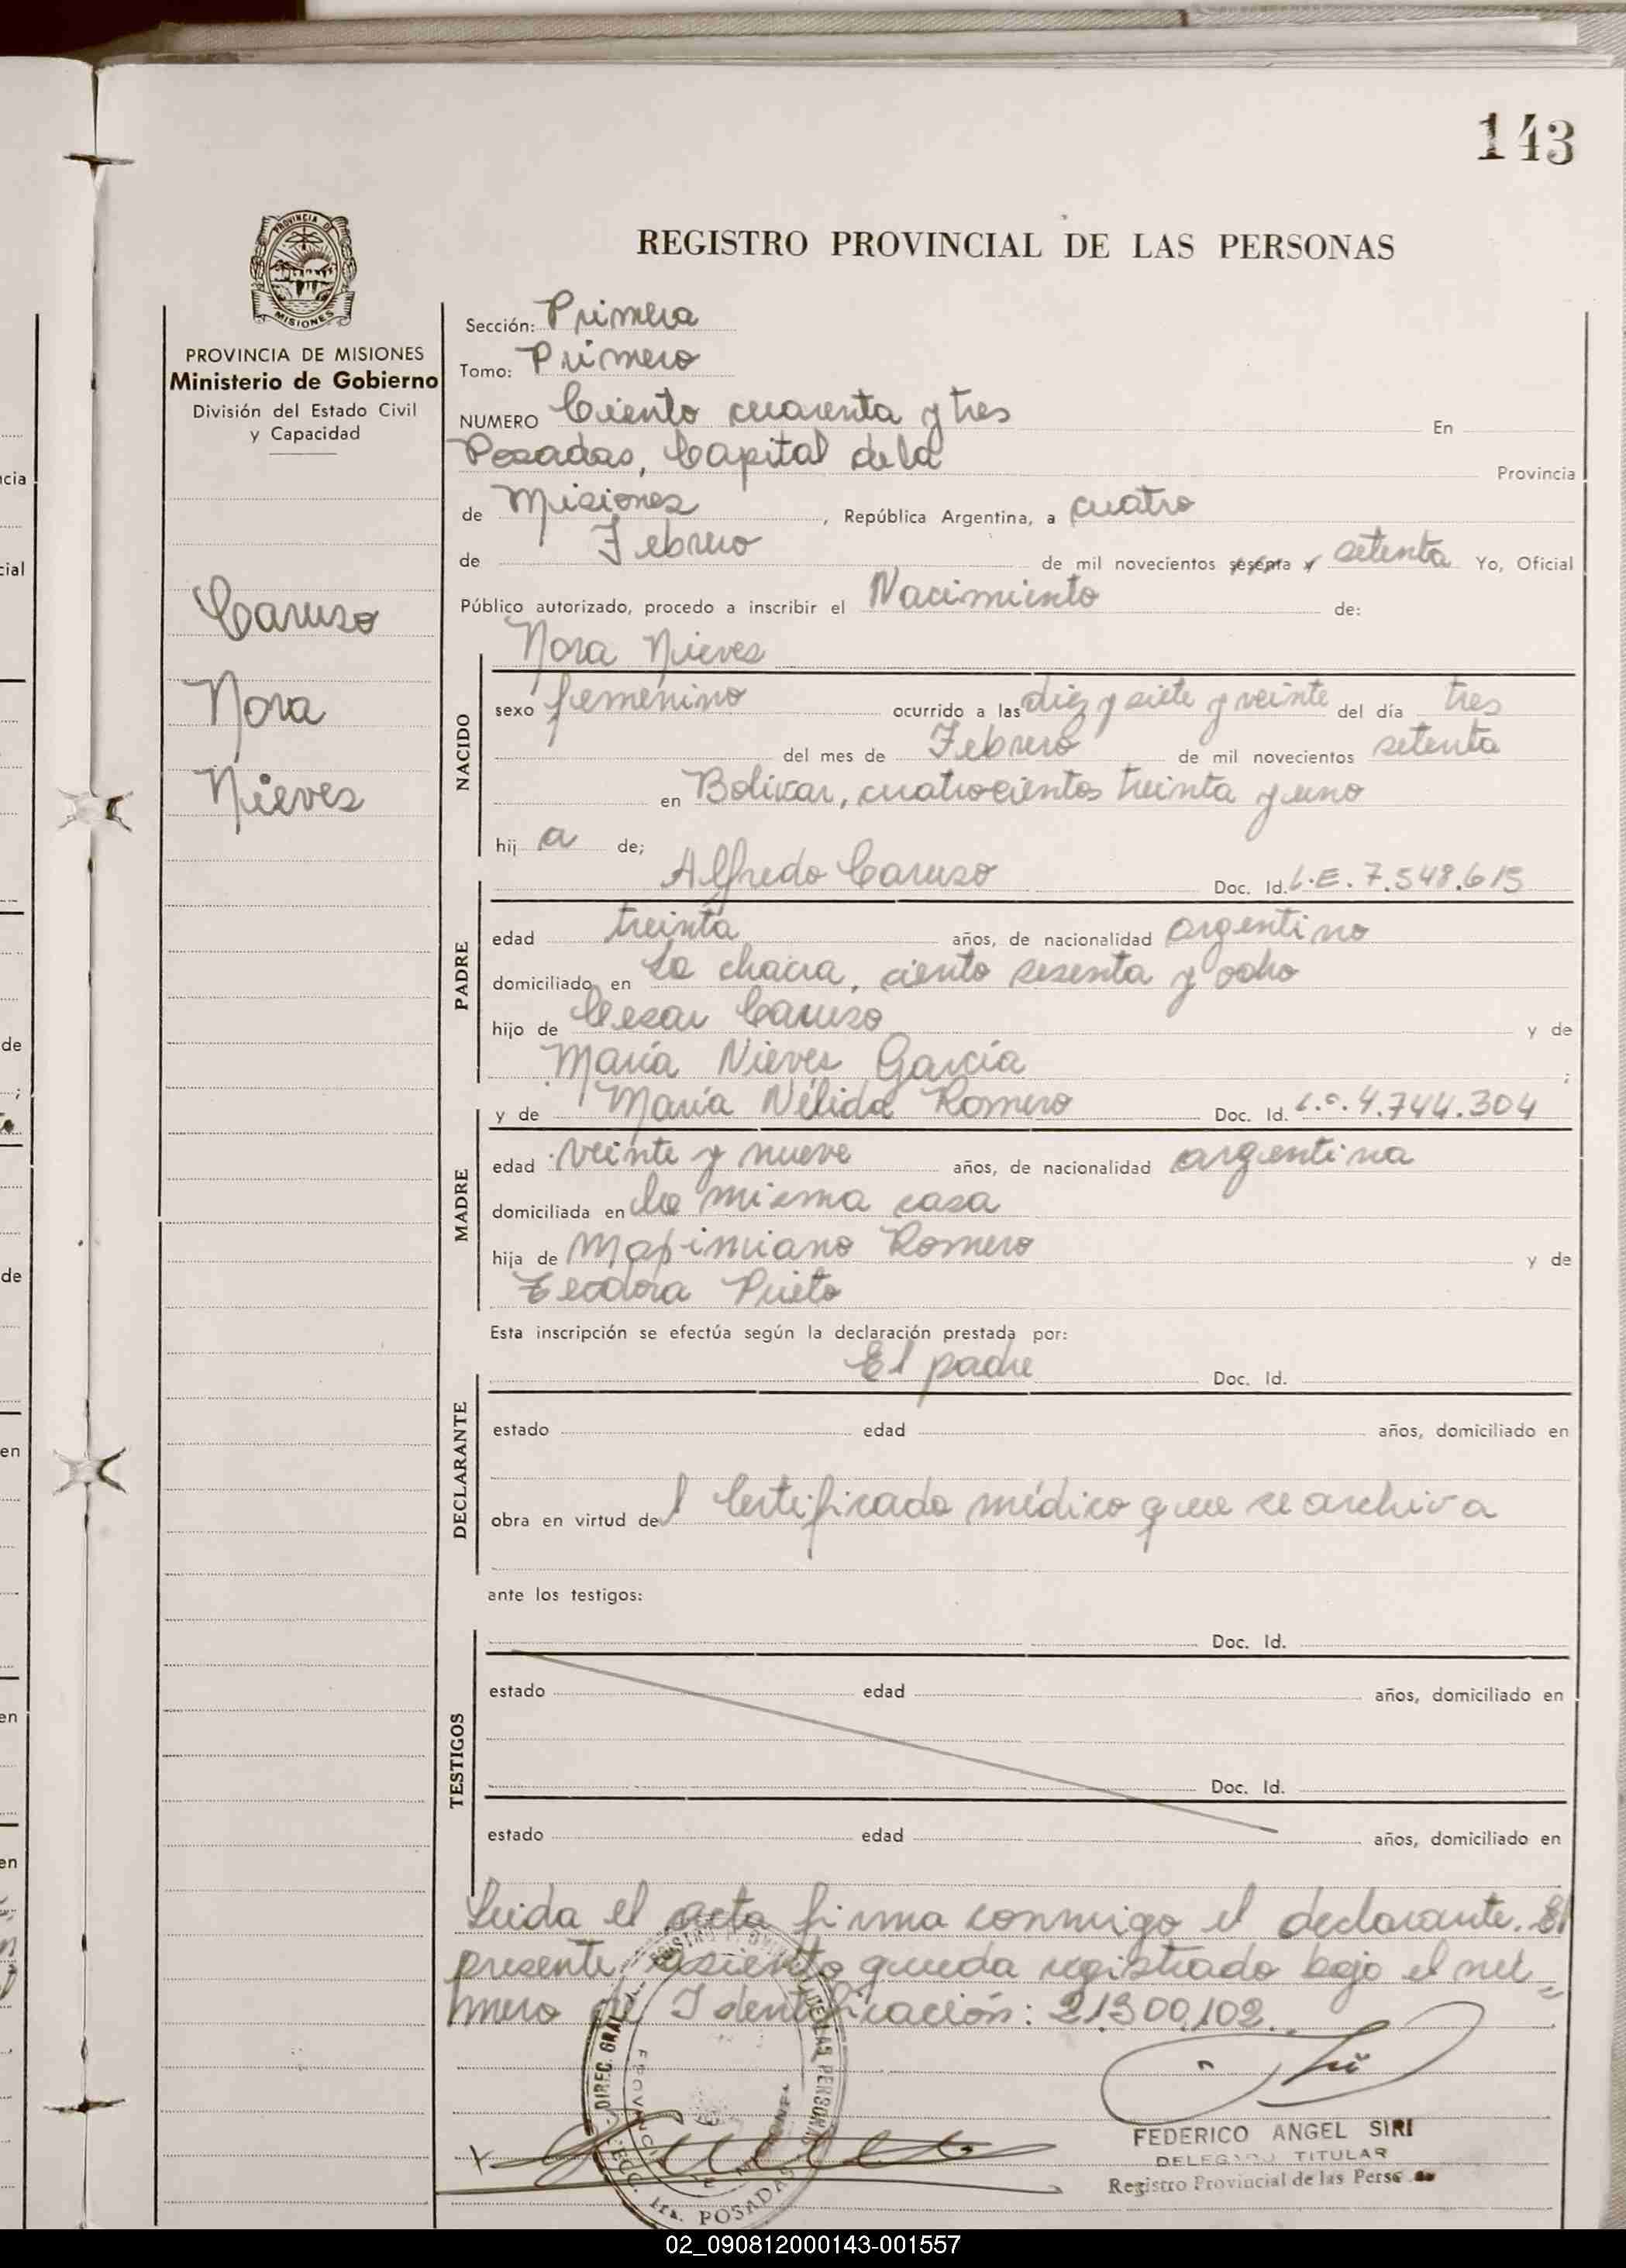 143
REGISTRO PROVINCIAL DE LAS PERSONAS
PROVINCIA DE MISIONES
Ministerio de Gobierno
División del Estado Civil
y Capacidad
Caruso
Nora
Nieves
Sección: Primera
Tomo: Primero
NUMERO Ciento cuarenta y tres En
Posadas, Capital de la Provincia
de Misiones, República Argentina, a cuatro
de Febrero de mil novecientos sesenta y setenta Yo, Oficial
Público autorizado, procedo a inscribir el Nacimiento de:
NACIDO
Nora Nieves
sexo femenino ocurrido a las diez y siete y veinte del día tres
del mes de Febrero de mil novecientos setenta
en Bolívar, cuatrocientos treinta y uno
hij a de;
PADRE
Alfredo Caruso Doc. Id. L.E. 7.548.615
edad treinta años, de nacionalidad argentino
domiciliado en La chacra, ciento sesenta y ocho
hijo de Cesar Caruso y de
María Nieves García ;
MADRE
y de María Nélida Romero Doc. Id. L.C. 4.744.304
edad veinte y nueve años, de nacionalidad argentina
domiciliada en la misma casa
hija de Maximiano Romero y de
Teodora Prieto
Esta inscripción se efectúa según la declaración prestada por:
DECLARANTE
El padre Doc. Id.
estado edad años, domiciliado en
obra en virtud del Certificado médico que se archiva
ante los testigos:
TESTIGOS
Doc. Id.
estado edad años, domiciliado en
Doc. Id.
estado edad años, domiciliado en
Leida el acta firma conmigo el declarante. El
presente asiento queda registrado bajo el nú=
mero de Identificación: 21.300.102.
FEDERICO ANGEL SIRI
DELEGADO TITULAR
Registro Provincial de las Perso
DIREC. GRAL. REGISTRO DE LAS PERSONAS
SECC. 1ra. POSADAS
02_090812000143-001557